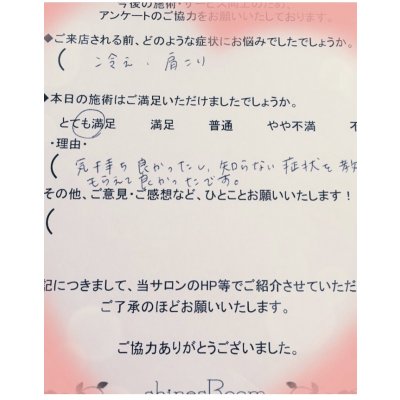 今後の施術・サービス向上のため、
アンケートのご協力をお願いいたしております。
◆ご来店される前、どのような症状にお悩みでしたでしょうか。
( 冷え、肩こり
◆本日の施術はご満足いただけましたでしょうか。
とても満足 満足 普通 やや不満 不
・理由・
( 気持ち良かったし、知らない症状を教
もらえて良かったです。
その他、ご意見・ご感想など、ひとことお願いいたします!
(
記につきまして、当サロンのHP等でご紹介させていただ
ご了承のほどお願いいたします。
ご協力ありがとうございました。
shinesRoom